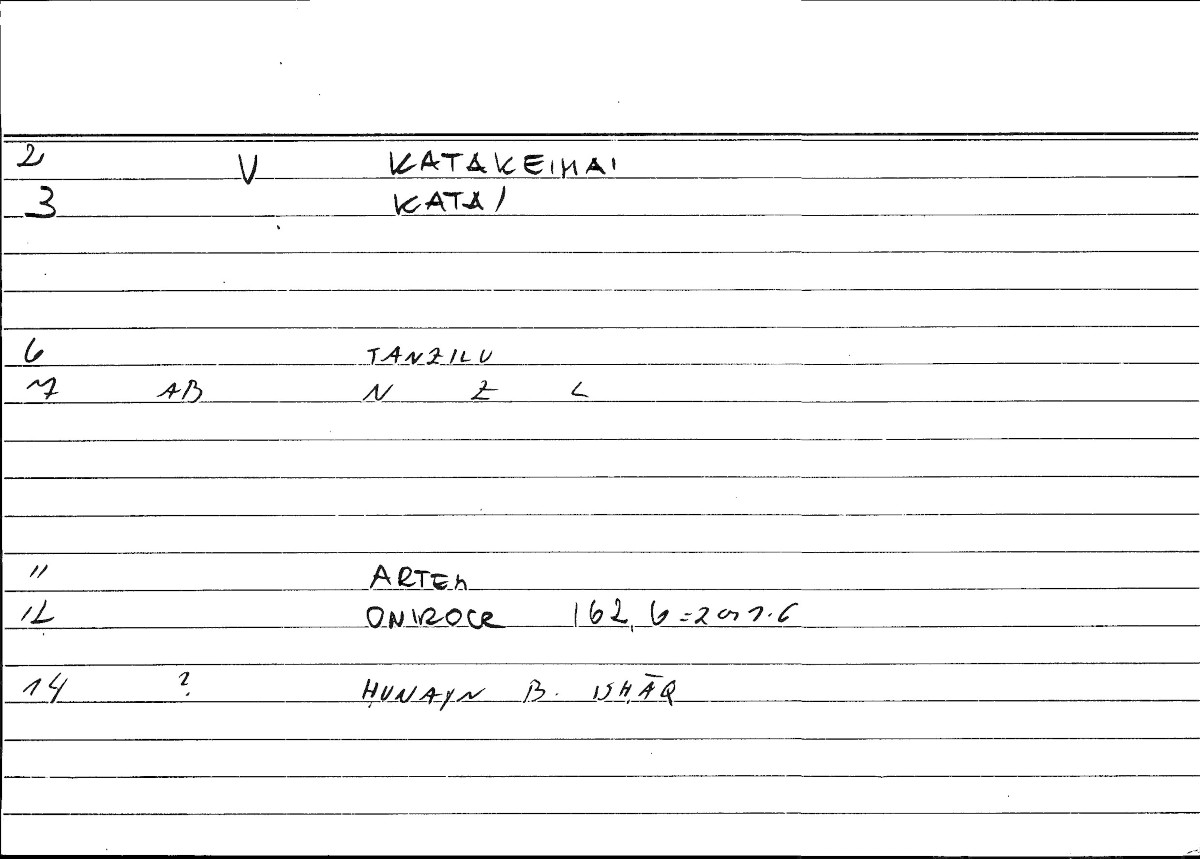 2 V KATAKEIMAI
3 KATA/
6 TANZILU
7 AB N Z L
11 ARTEM
12 ONIROCR 162, 6 =
14 ? ḤUNAYN B. ISḤĀQ